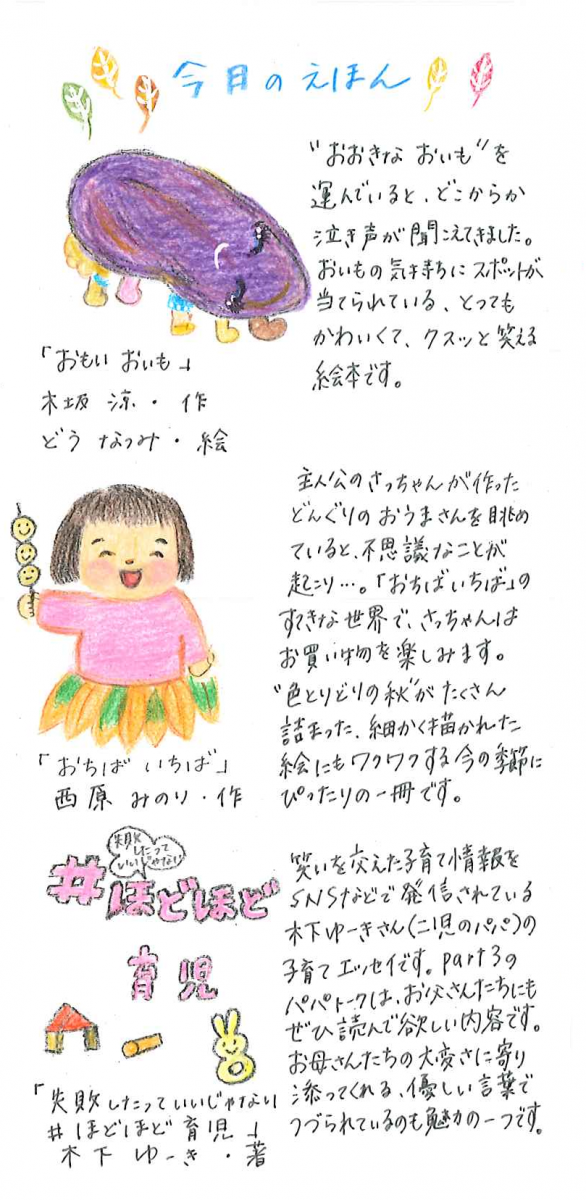 今月のえほん
"おおきな おいも"を
運んでいると、どこからか
泣き声が聞こえてきました。
おいもの気持ちにスポットが
当てられている、とっても
かわいくて、クスッと笑える
絵本です。
「おもい おいも」
木坂 涼・作
どう なつみ・絵
主人公のさっちゃんが作った
どんぐりのおうまさんを眺め
ていると、不思議なことが
起こり…。「おちばいちば」の
すてきな世界で、さっちゃんは
お買い物を楽しみます。
"色とりどりの秋"がたくさん
詰まった、細かく描かれた
絵にもワクワクする今の季節に
ぴったりの一冊です。
「おちば いちば」
西原 みのり・作
失敗
したって
いいじゃない
#ほどほど
育児
笑いを交えた子育て情報を
SNSなどで発信されている
木下ゆーきさん(二児のパパ)の
子育てエッセイです。part3の
パパトークは、お父さんたちにも
ぜひ読んで欲しい内容です。
お母さんたちの大変さに寄り
添ってくれる、優しい言葉で
つづられているのも魅力の一つです。
「失敗したっていいじゃない
#ほどほど育児」
木下 ゆーき・著